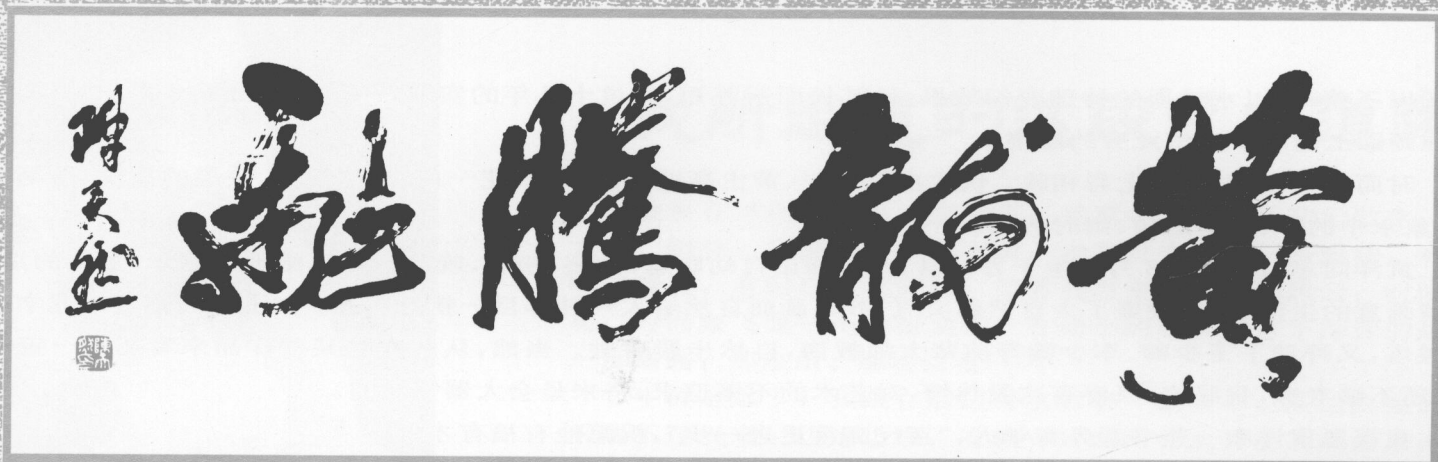 黄龍騰飛
陳天然